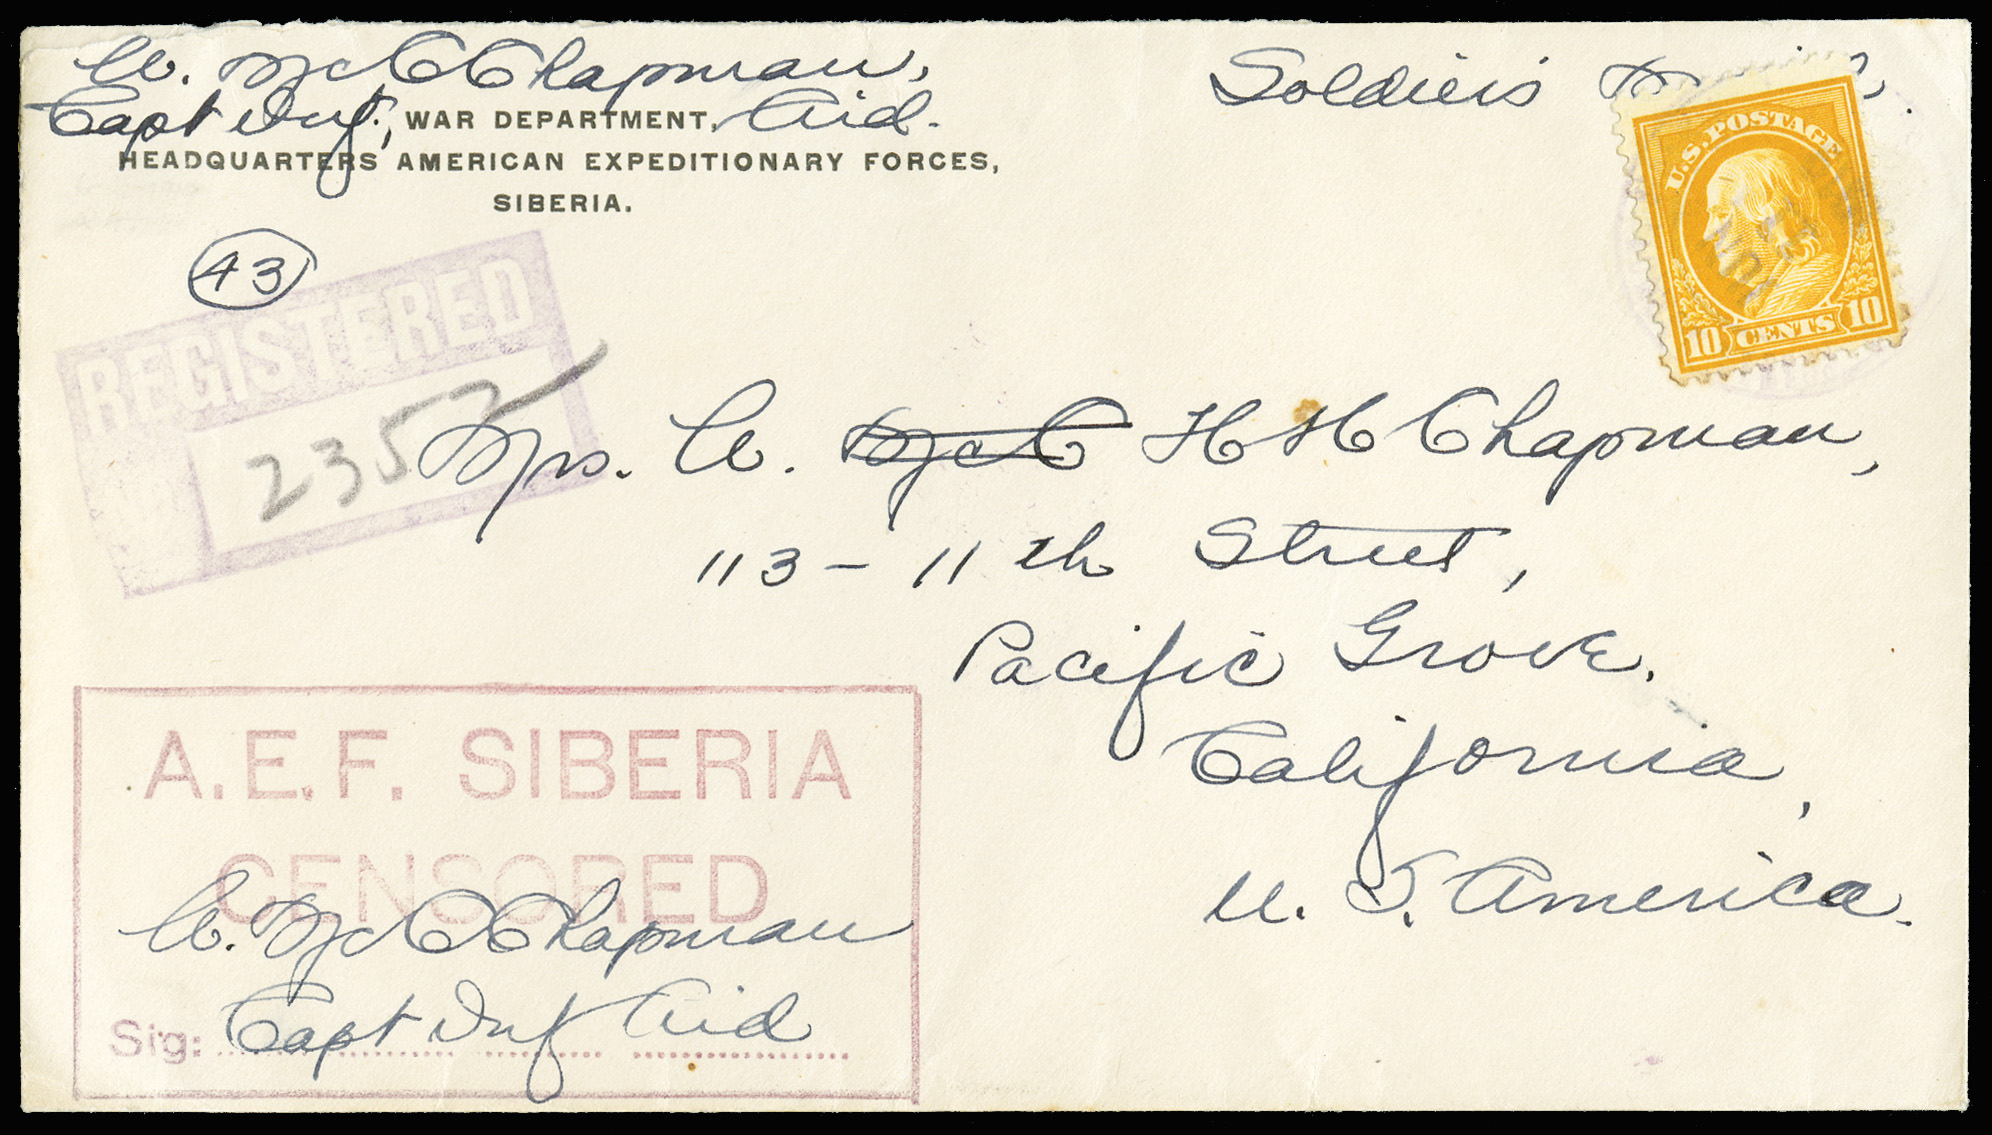 W. McC Chapman,
Capt Inf., WAR DEPARTMENT, Aid.
HEADQUARTERS AMERICAN EXPEDITIONARY FORCES,
SIBERIA.
Soldier's
U.S. POSTAGE
10 CENTS 10
43
REGISTERED
NO 2357
Mrs. W. McC H H Chapman,
113 - 11 th Street,
Pacific Grove.
California,
U. S. America.
A.E.F. SIBERIA
CENSORED
W. McC Chapman
Sig: Capt Inf Aid